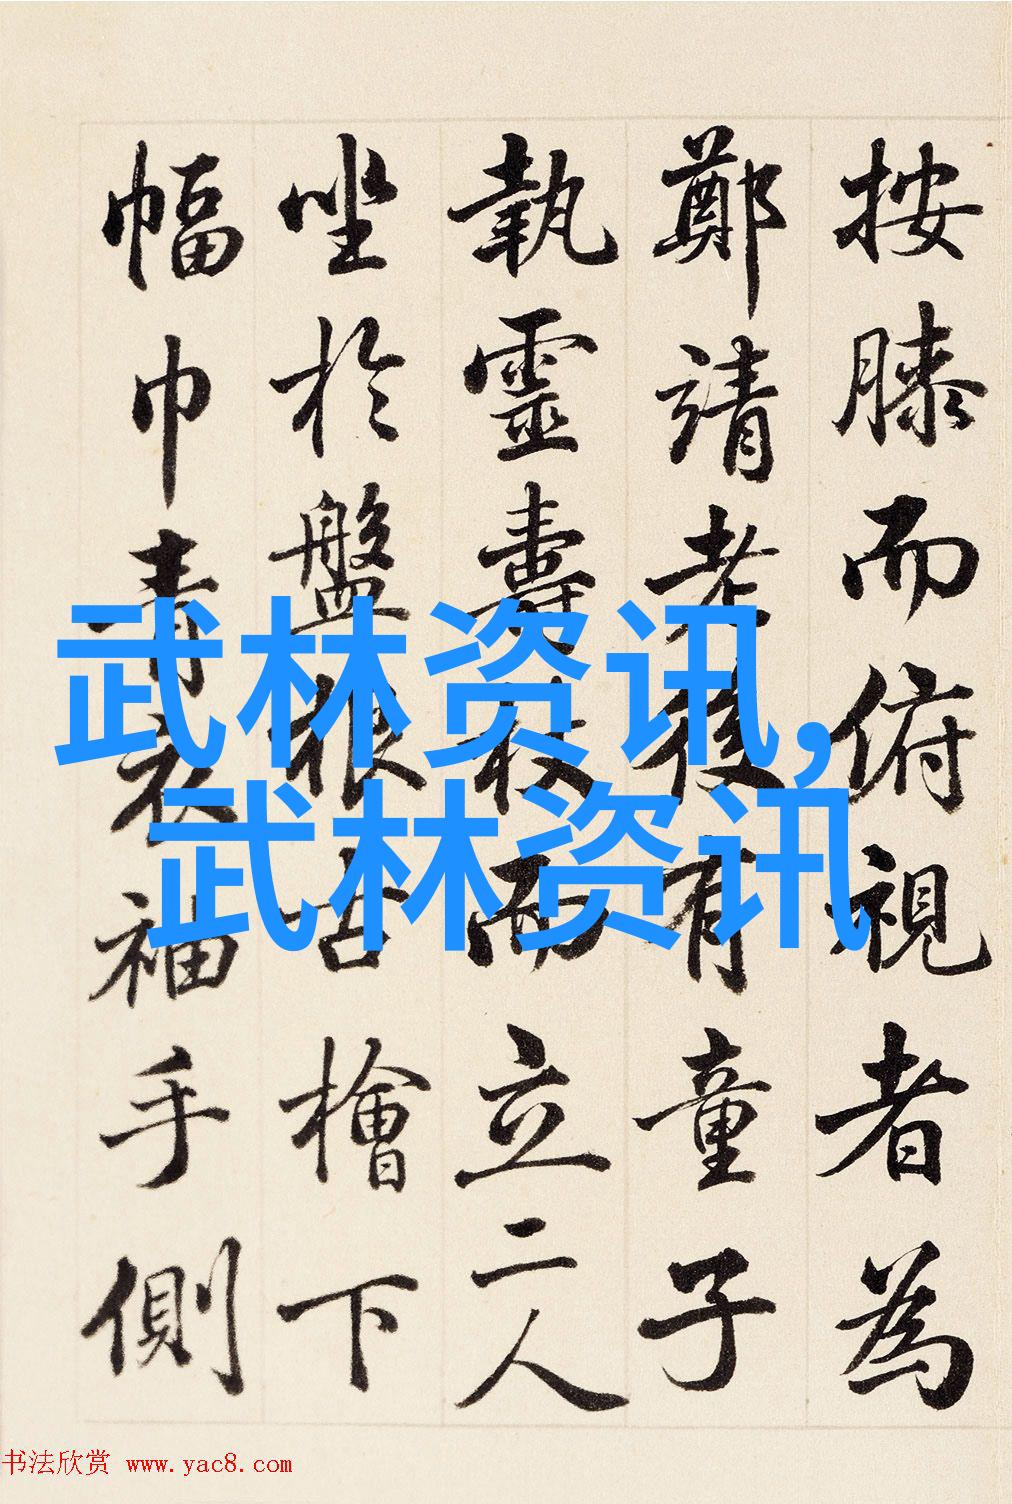 按膝而俯視者為
鄭靖老後有童子
執靈壽杖而立二人
坐於盤根古檜下
幅巾青衣袖手側
武林资讯,
武林资讯
书法欣赏 www.yac8.com